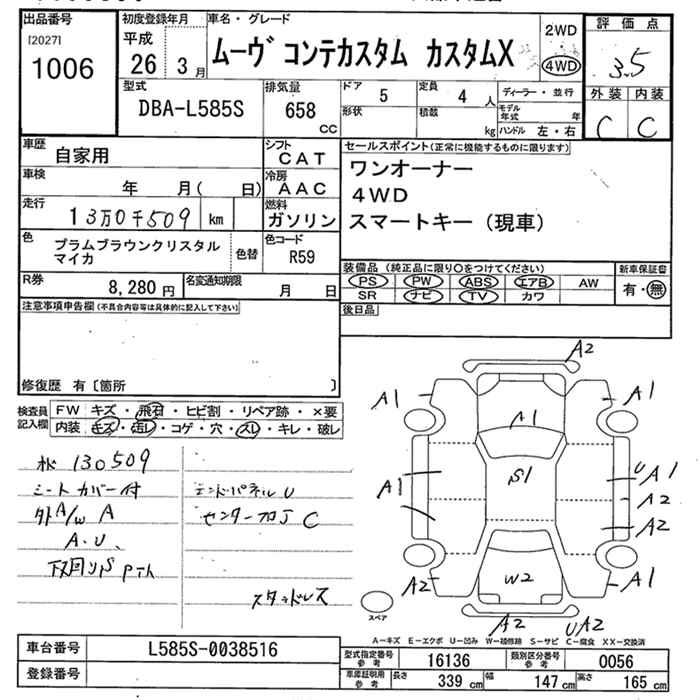 出品番号 初度登録年月 車名・グレード 評価点
[2027] 平成 ムーヴ コンテカスタム カスタムX 2WD
1006 26年 3月 4WD 3.5
型式 排気量 ドア 5 定員 4人 ディーラー・並行 外装 内装
DBA-L585S 658cc 形状 積数 kg モデル年式 年 C C
ハンドル 左・右
車歴 自家用 シフト CAT セールスポイント(正常に機能するものに限ります)
車検 年 月( 日) 冷房 AAC ワンオーナー
走行 13万0千509 km 燃料 ガソリン 4WD
スマートキー(現車)
色 プラムブラウンクリスタル 色替 色コード
マイカ R59
R券 8,280円 名変通知期限 月 日
装備品(純正品に限り○をつけてください) 新車保証書
PS PW ABS エアB AW 有・無
SR ナビ TV カワ
注意事項申告欄(不具合内容等は具体的に記入して下さい) 後日品
修復歴 有〔箇所 〕
検査員 FW キズ・飛石・ヒビ割・リペア跡・×要
記入欄 内装 キズ・汚レ・コゲ・穴・スレ・キレ・破レ
130509
シートカバー付 エンドパネルU
外A/W A C
A.U、
スタッドレス
A2
A1 A1 A1
A1 S1 UA1
A2
A2
A2 W2 A1
A2 UA2
スペア
A-キズ E-エクボ U-凹み W-補修跡 S-サビ C-腐食 XX-交換済
車台番号 L585S-0038516 型式指定番号 参考 16136 類別区分番号 参考 0056
登録番号 車庫証明用 参考 長さ 339cm 幅 147cm 高さ 165cm